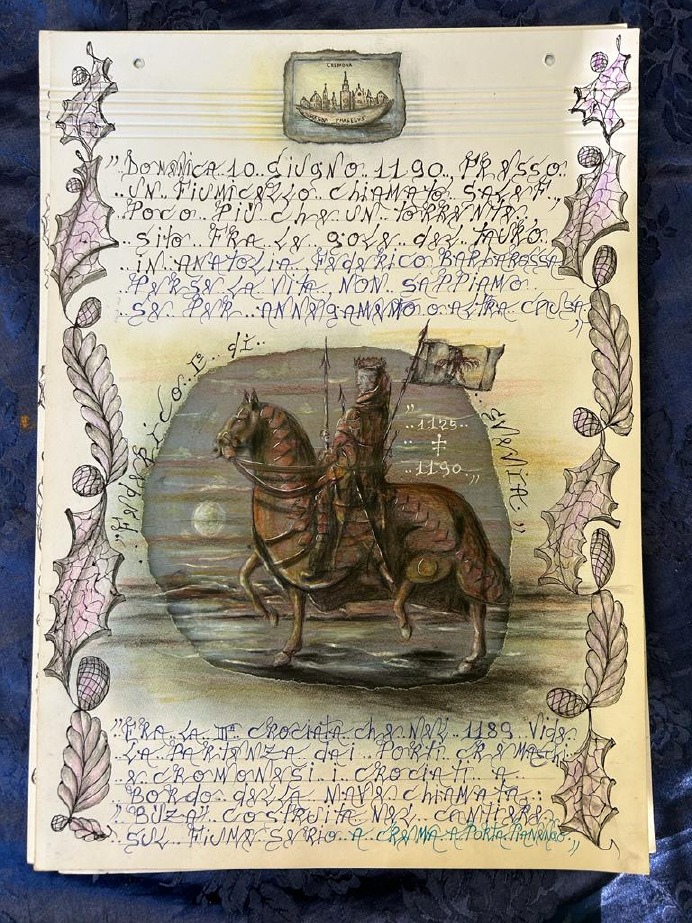 CREMONA
„Domenica 10 Giugno 1190 presso
un fiumicello chiamato Salef,
poco più che un torrente,
sito fra le gole del Tauro,
in Anatolia Federico Barbarossa
perse la vita non sappiamo
se per annegamento o altra causa„
„Federico I° di
Svevia„
„1125
+
1190„
„Era la III crociata che nel 1189 vide
la partenza dai porti cremaschi
e cremonesi i crociati a
bordo della nave chiamata:
"Buza" costruita nel cantiere
sul fiume Serio a Crema a Porta„